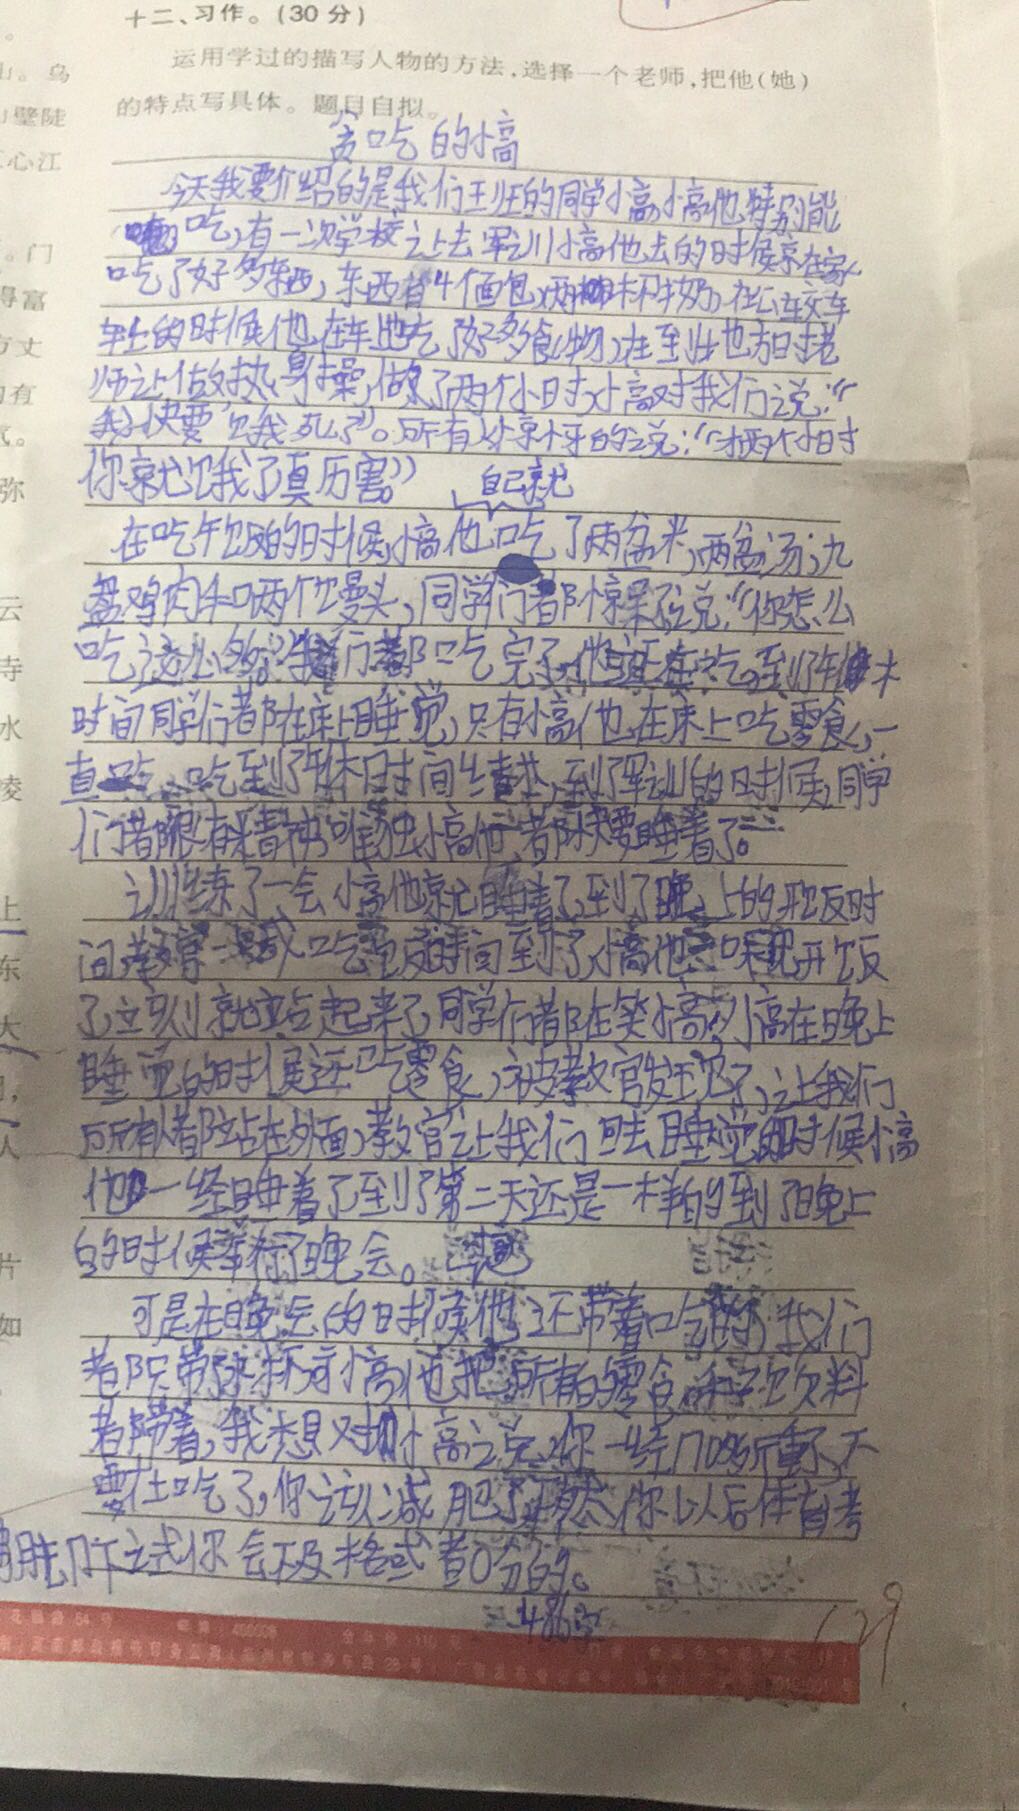 十二、习作。(30分)
运用学过的描写人物的方法,选择一个老师,把他(她)
的特点写具体。题目自拟。
贪吃的小高
今天我要介绍的是我们王班的同学小高,小高他特别能
吃,有一次学校让去军训小高他去的时候就在家
吃了好多东西,东西有4个面包,两杯牛奶,在公交车
车上的时候他在车上吃了好多食物,在到地方时老
师让做热身操,做了两个小时小高对我们说:“
我快要饿死了”。所有人惊讶的说:“才两个小时
你就饿了真历害。”
自己就
在吃午饭的时候,小高他吃了两盆米,两盆汤,九
盘鸡肉和两个馒头,同学们都惊呆了说:“你怎么
吃这么多。”我们都吃完了他还在吃。到了午休
时间同学们都在床上睡觉,只有小高他在床上吃零食,一
直吃吃到了午休时间结束,到了军训的时候,同学
们都很有精神唯独小高他都快要睡着了。
训练了一会小高他就睡着了,到了晚上的开饭时
间教官一喊吃饭时间到了小高他一听见开饭
了立刻就站起来了,同学们都在笑小高,小高在晚上
睡觉的时候还吃零食,被教官发现了,让我们
所有人都站在外面,教官让我们回去睡觉的时候小高
他一经睡着了到了第二天还是一样的到了晚上
的时候举行了晚会。
可是在晚会的时候他还带着吃的,我们
都只带水杯小高他把所有的零食和饮料
都带着,我想对小高说:你一经170多斤重了,不
要在吃了,你该减肥了不然你以后体育考
跑几下立式你会不及格或者0分的。
486字
29
山。乌
山壁陡
江心江
。门
得富
方丈
的有
气。
弥
云
寺
水
凌
上
东
大
人
片
如